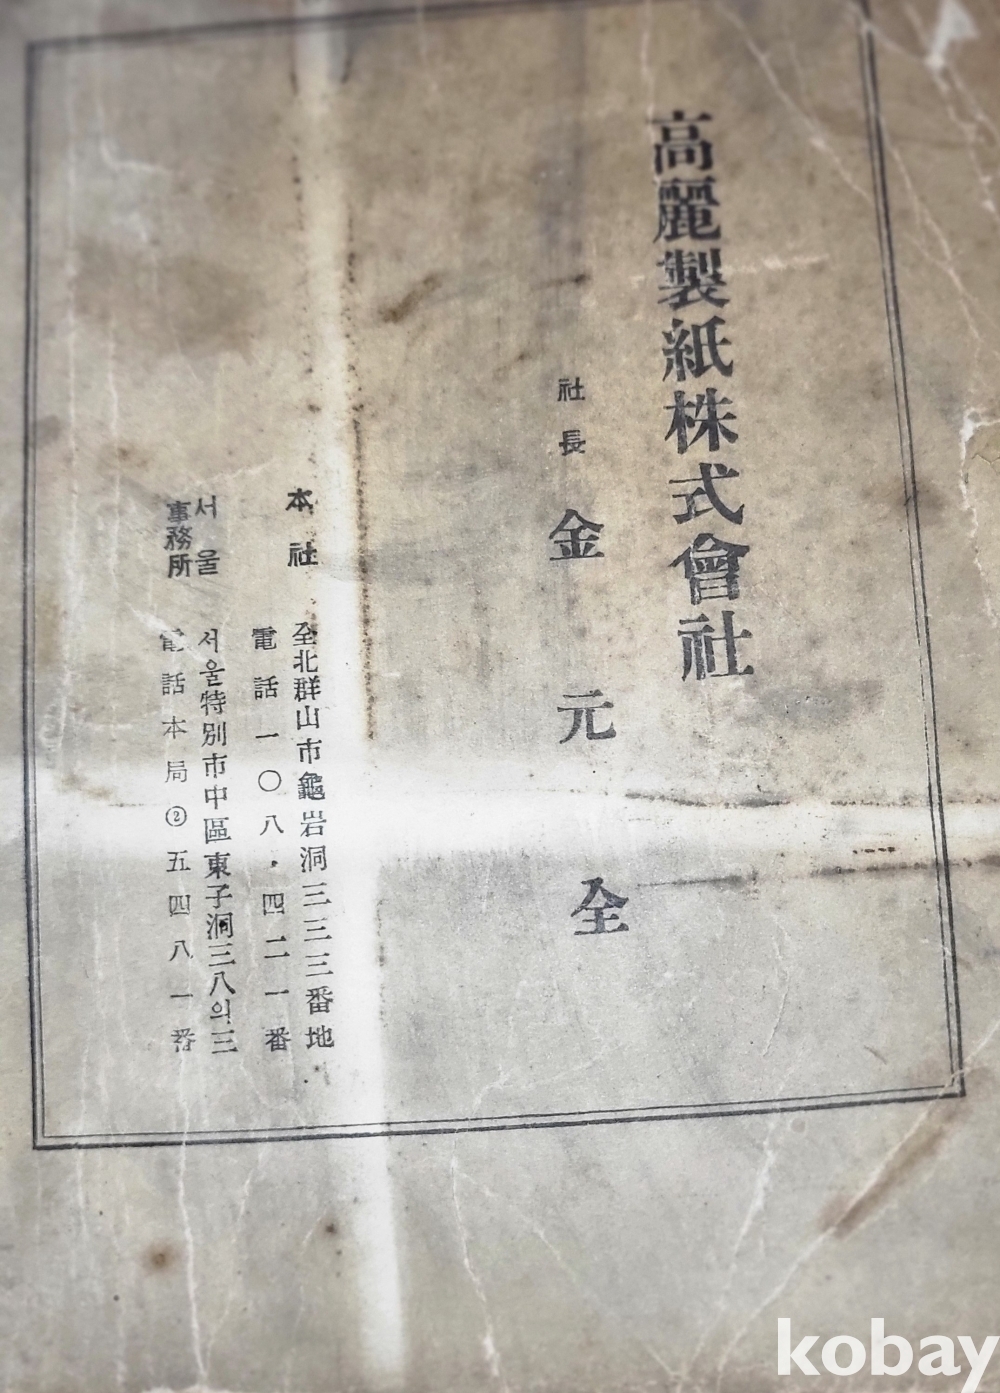 高麗製紙株式會社
社長 金元全
本社 全北群山市龜岩洞三三三番地
電話一〇八·四二一番
서울事務所 서울特別市中區東子洞三八의三
電話本局②五四八一番
kobay